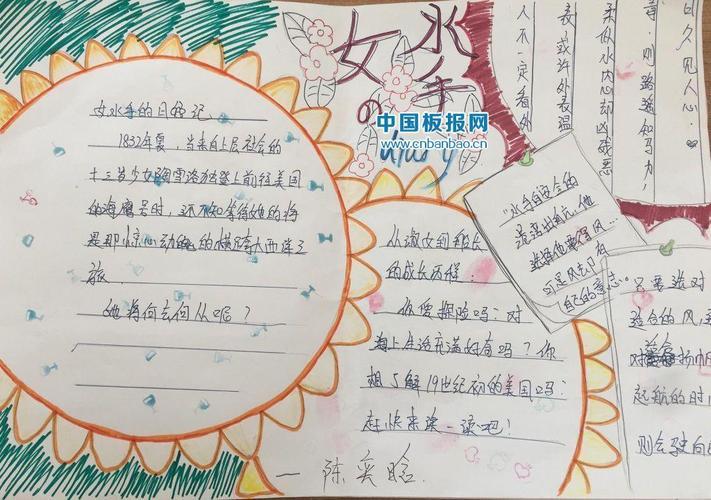 女水手的日记
1832年夏,当来自上层社会的
十三岁少女雪洛力登上前往美国
的海鹰号时,还不知等待她的将
是那惊心动魄的横渡大西洋之
旅.
她将何去何从呢?
女水手
の
diary
中国板报网
www.cnbanbao.cn
从淑女到船长
的成长历程.
你爱探险吗?对
海上生活充满好奇吗?你
想了解19世纪初的美国吗?
赶快来读一读吧!
"水手自己的
选择他要得风...
可是风也有
自己的意志."
只要选对
适合的风,
扬帆
起航的时
则会驶向
人不一定看外
表或许外表温
柔似水内心却凶残恶
毒,则路遥知马力,
日久见人心.
一陈奕晗.